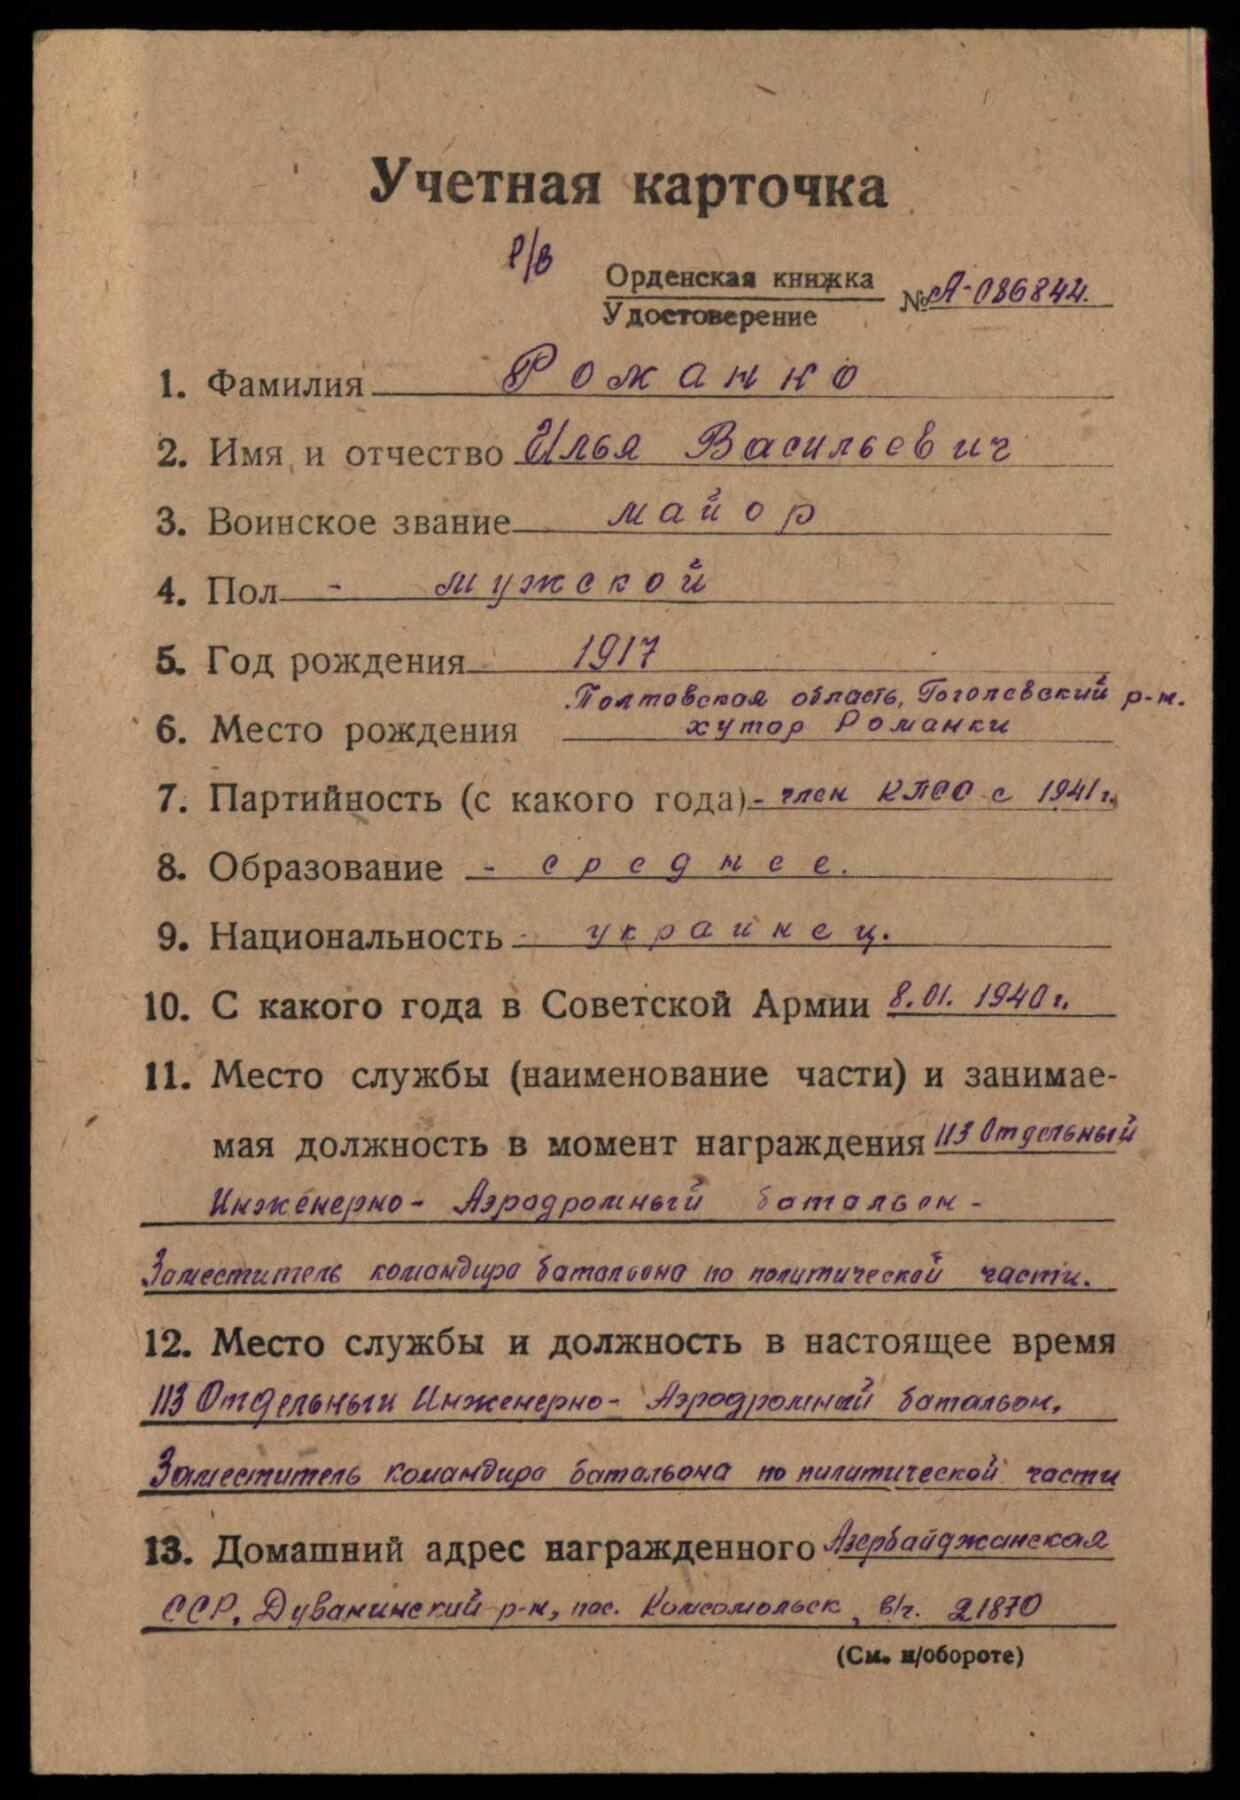 Учетная карточка
р/в
Орденская книжка
Удостоверение
№ А-086844.
1. Фамилия Романко
2. Имя и отчество Илья Васильевич
3. Воинское звание майор
4. Пол - мужской
5. Год рождения 1917
Полтовская область, Гоголевский р-н.
6. Место рождения хутор Романки
7. Партийность (с какого года) - член КПСС с 1941 г.
8. Образование - среднее.
9. Национальность - украинец.
10. С какого года в Советской Армии 8.01. 1940 г.
11. Место службы (наименование части) и занимае-
мая должность в момент награждения 113 Отдельный
Инженерно- Аэродромный батальон -
Заместитель командира батальона по политической части.
12. Место службы и должность в настоящее время
113 Отдельный Инженерно- Аэродромный батальон,
Заместитель командира батальона по пилитической части
13. Домашний адрес награжденного Азербайджанская
ССР, Дуванинский р-н, пос. Комсомольск, в/ч. 21870
(См. н/обороте)